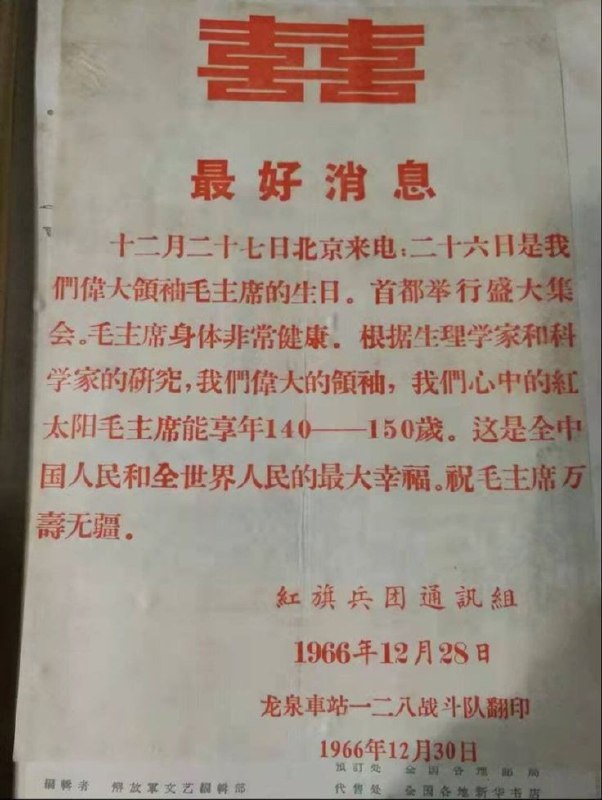 囍
最好消息
十二月二十七日北京来电:二十六日是我
們偉大領袖毛主席的生日。首都举行盛大集
会。毛主席身体非常健康。根据生理学家和科
学家的研究,我們偉大的領袖,我們心中的紅
太阳毛主席能享年140——150歲。这是全中
国人民和全世界人民的最大幸福。祝毛主席万
壽无疆。
紅旗兵团通訊組
1966年12月28日
龙泉車站一二八战斗队翻印
1966年12月30日
預訂处 全国各地邮局
編輯者 解放軍文艺編輯部 代售处 全国各地新华书店